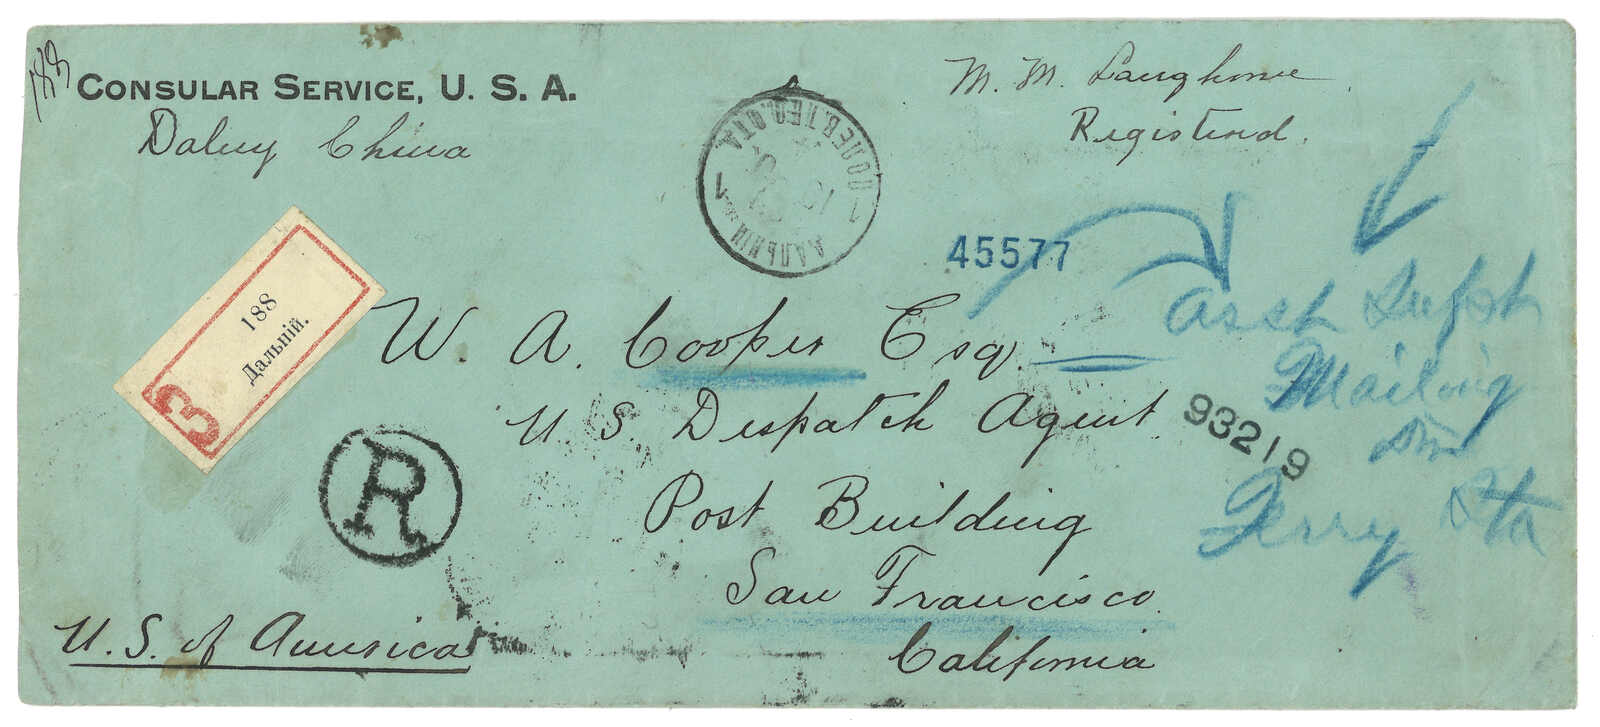 188
CONSULAR SERVICE, U. S. A.
Dalny China
M. M. Langhorne
Registered.
1 ПОЧ.ТЕЛ.ОТД. 1
ДАЛЬНІЙ
45577
188
Дальній.
З
W. A. Cooper Esq.
U. S. Despatch Agent
Post Building
San Francisco
California
Asst Supt
Mailing
Div
Ferry Sta
93219
R
U. S. of America